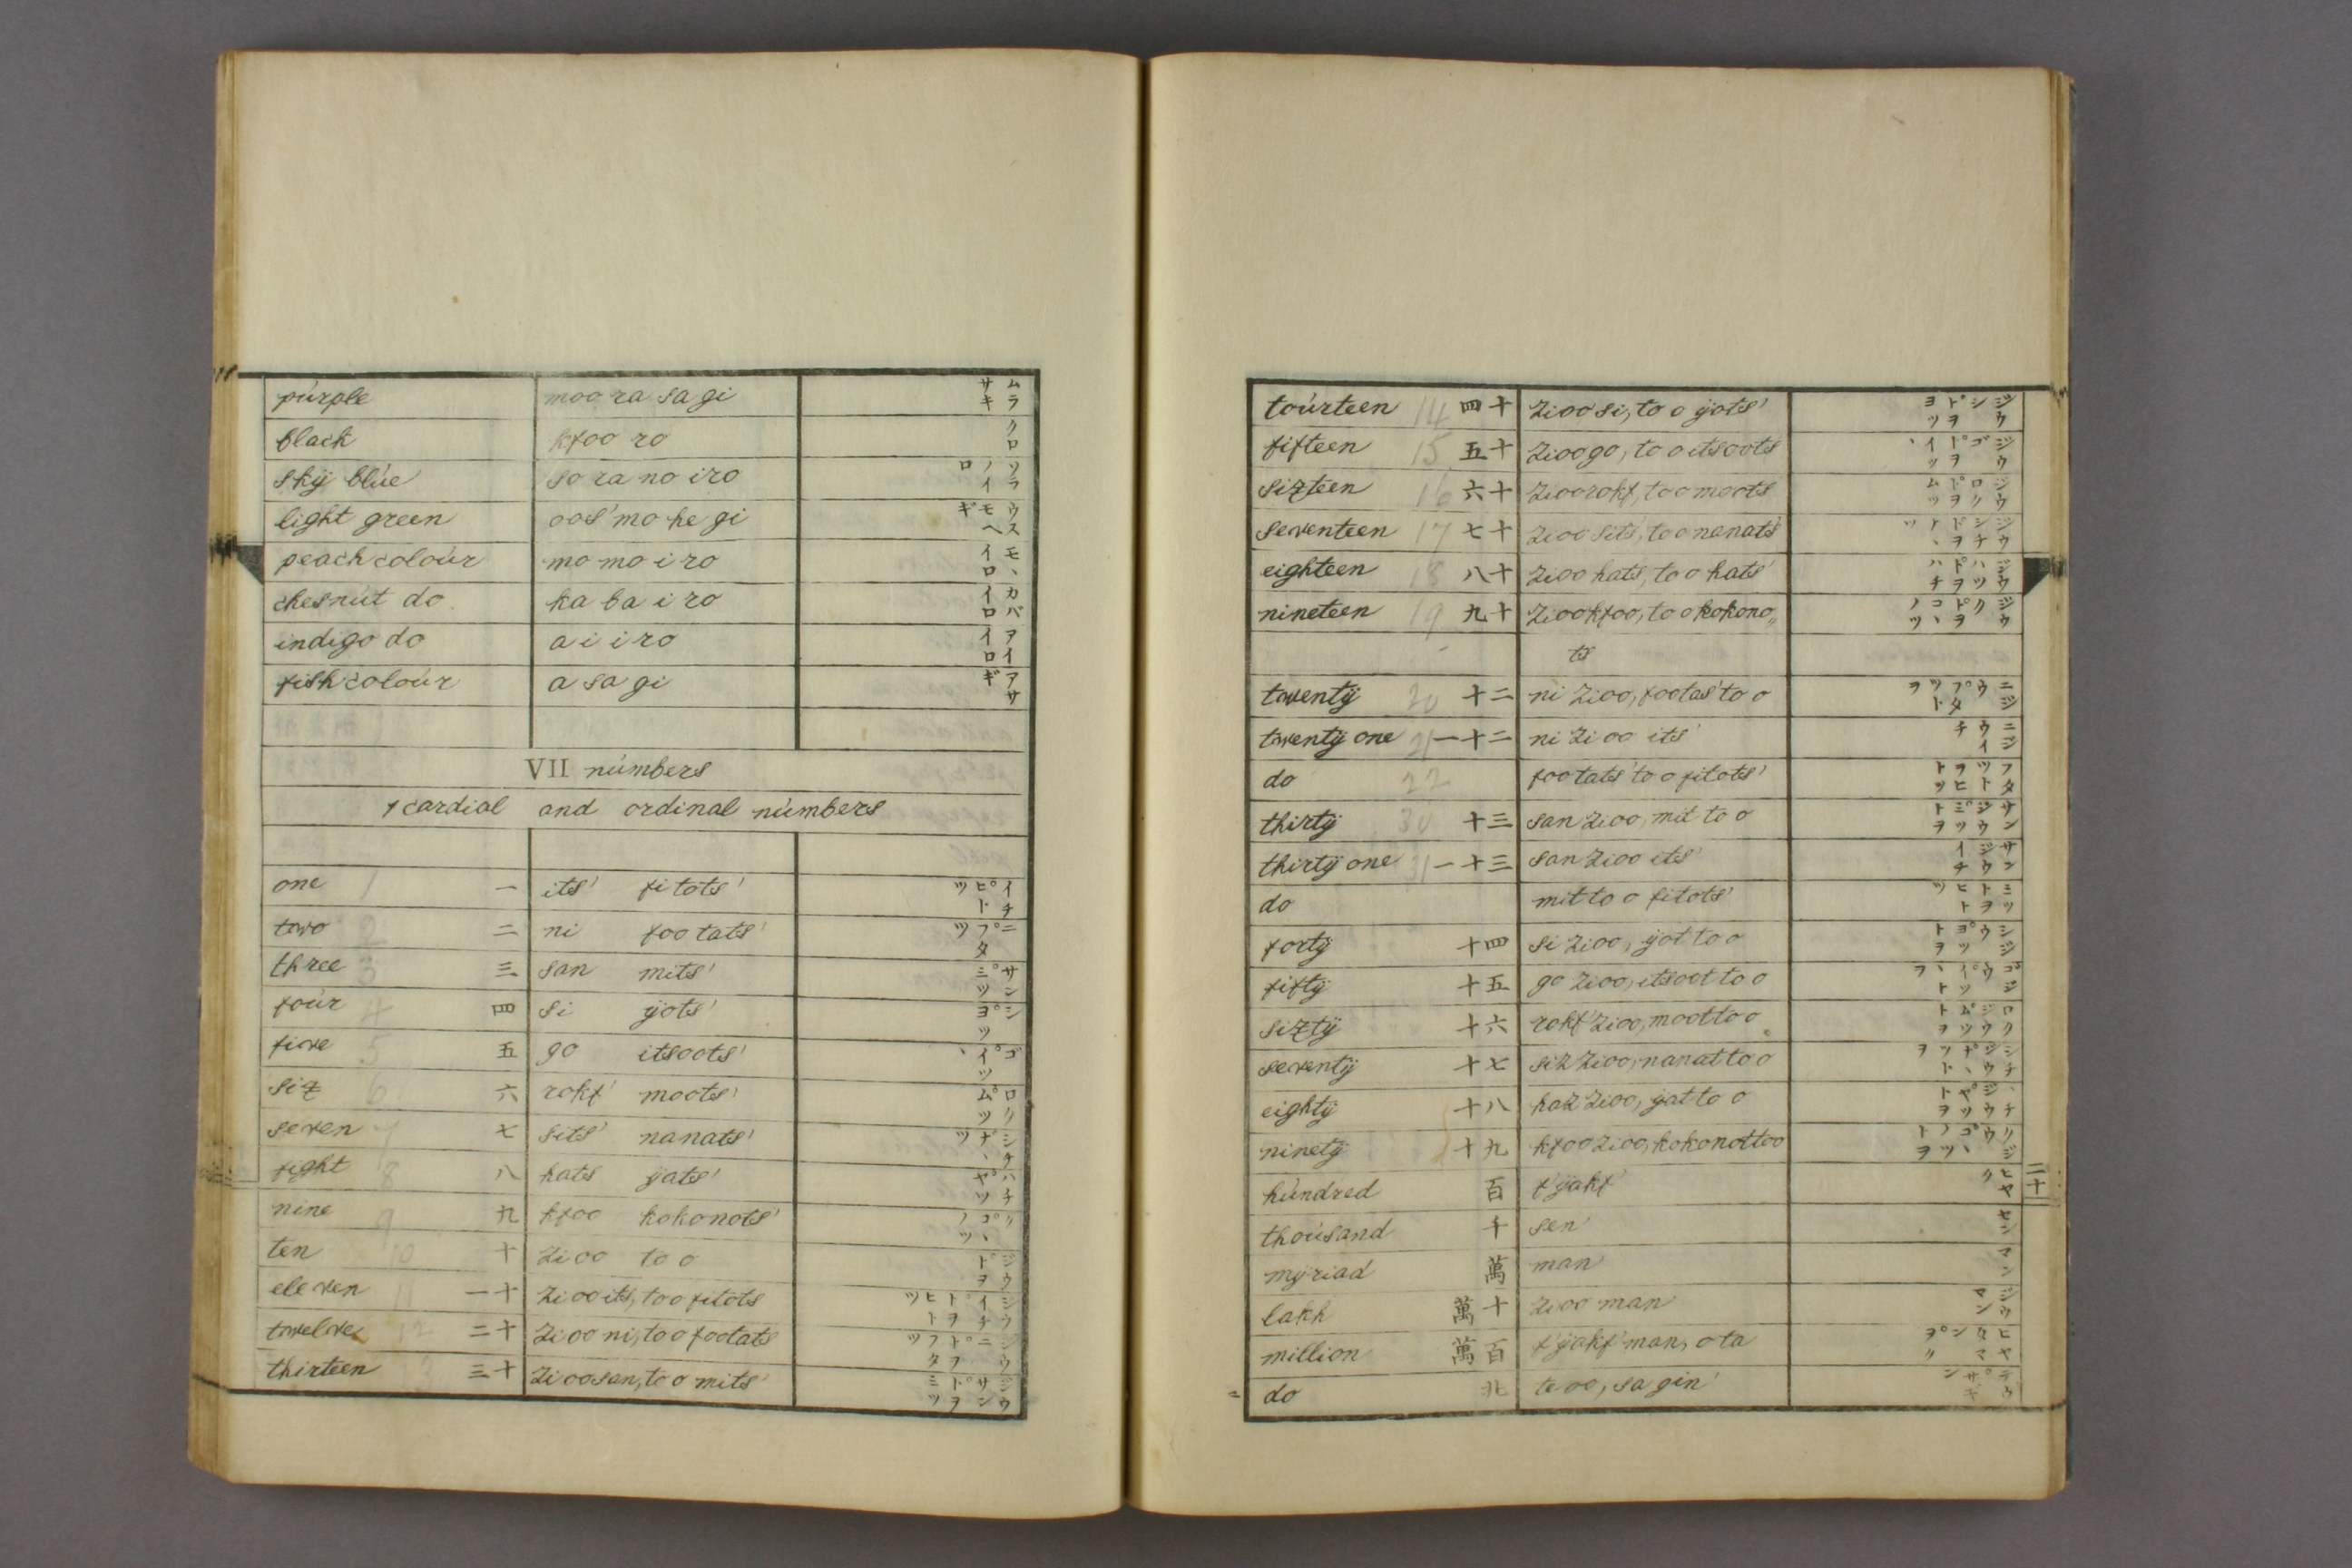 púrple moo ra sa gi ムラサキ
black kfoo ro クロ
skÿ blúe so ra no iro ソラノイロ
light green oos' mo he gi ウスモヘギ
peach coloúr mo mo i ro モヽイロ
chesnút do ka ba i ro カバイロ
indigo do a i i ro アイイロ
fish coloúr a sa gi アサギ
VII númbers
1 cardial and ordinal númbers
one 1 一 its' fi tots' イチ゜ヒトツ
two 2 二 ni foo tats' ニ゜フタツ
three 3 三 san mits' サン゜ミツ
foúr 4 四 si ÿots' シ゜ヨツ
five 5 五 go itsoots' ゴ゜イツヽ
siz 6 六 rokf moots' ロク゜ムツ
seven 7 七 sits' nanats' シチ゜ナヽツ
fight 8 八 hats ÿats' ハチ゜ヤツ
nine 9 九 kfoo kokonots' ク゜コノヽツ
ten 10 十 zi oo to o ジウ゜トヲ
eleven 11 十一 zi oo its, to o fitots ジウイチ゜トヲヒトツ
twelve 12 十二 zi oo ni, to o footats ジウニ゜トヲフタツ
thirteen 13 十三 zi oo san, to o mits' ジウサン゜トヲミツ
toúrteen 14 十四 zioo si, to o ÿots' ジウシ゜トヲヨツ
fifteen 15 十五 zioo go, to o itsoots ジウゴ゜トヲイツヽ
sizteen 16 十六 zioo rokf, to o moots' ジウロク゜トヲムツ
seventeen 17 十七 zioo sits', to o nanats' ジウシチ゜トヲナヽツ
eighteen 18 十八 zioo hats, to o hats' ジウハツ゜トヲハチ
nineteen 19 十九 zioo kfoo, to o kokono〃 ジウク゜トヲコノヽツ
ts
twentÿ 20 二十 ni zioo, footas' to o ニジウ゜フタツトヲ
twentÿ one 21 二十一 ni zi oo its' ニジウイチ
do 22 foo tats' to o fitots' フタツトヲヒトツ
thirtÿ 30 三十 san zioo, mit to o サンジウ゜ミツトヲ
thirtÿ one 31 三十一 san zioo its' サンジウイチ
do mit to o fitots' ミツトヲヒトツ
fortÿ 四十 si zioo, ÿot to o シジウ゜ヨツトヲ
fiftÿ 五十 go zioo, itsoot to o ゴジウ゜イツヽトヲ
siztÿ 六十 rokf zioo, moot to o ロクジウ゜ムツトヲ
seventÿ 七十 siz zioo, nanat to o シチジウ゜ナヽツトヲ
eightÿ 八十 haz zioo, ÿat to o ハチジウ゜ヤツトヲ
ninetÿ 九十 kfoo zioo, kokonottoo クジウ゜コノヽツトヲ
húndred 百 f'ÿakf ヒヤク
thoúsand 千 sen セン
mÿriad 萬 man マン
lakh 十萬 zioo man ジウマン
million 百萬 f'ÿakf' man, o ta
do 兆 te oo, sa gin' テウ゜サギン
二十